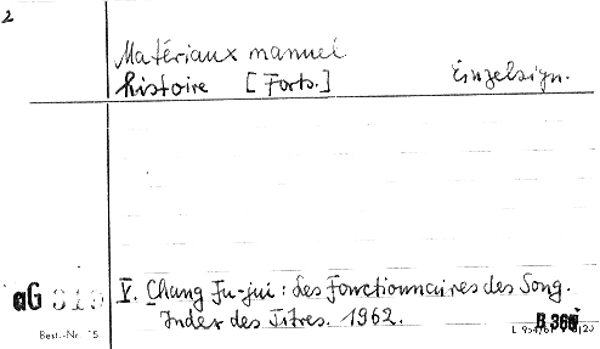 2
Matériaux manuel
histoire [Forts.] Einzelsign.
aG V. Chang Fu-jui: Les Fonctionnaires des Song.
Index des Titres. 1962.
Best.-Nr B 366